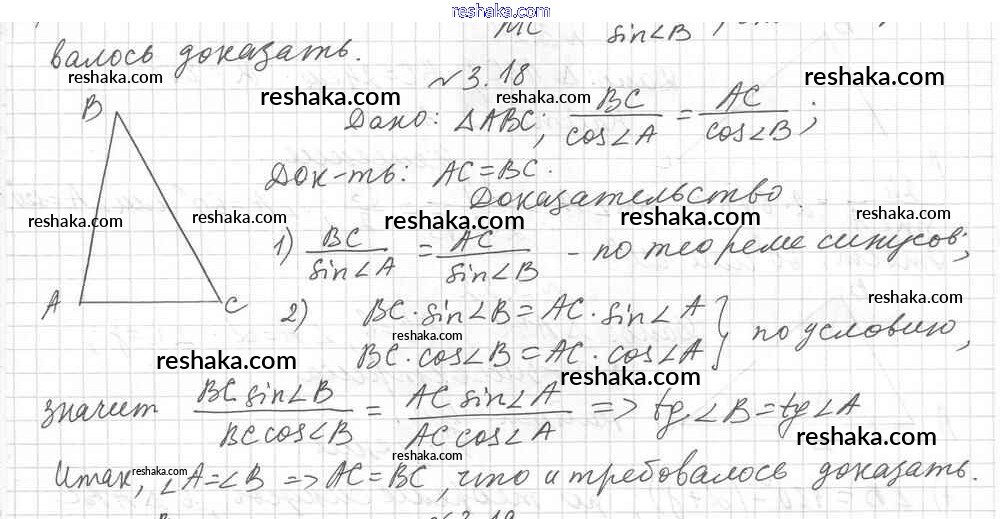 reshaka.com
MC sin∠B ,
валось доказать.
reshaka.com
№3.18
reshaka.com
reshaka.com
reshaka.com
B
Дано: ∆ABC; BC/cos∠A = AC/cos∠B;
Док-ть: AC=BC.
Доказательство.
reshaka.com
reshaka.com
reshaka.com
reshaka.com
reshaka.com
1) BC/sin∠A = AC/sin∠B - по теореме синусов;
A
C
2) BC·sin∠B = AC·sin∠A
reshaka.com
reshaka.com
BC·cos∠B = AC·cos∠A } по условию,
reshaka.com
reshaka.com
значит BC sin∠B/BC cos∠B = AC sin∠A/AC cos∠A => tg∠B = tg∠A
reshaka.com
Итак, ∠A=∠B => AC=BC, что и требовалось доказать.
reshaka.com
reshaka.com
№3.19